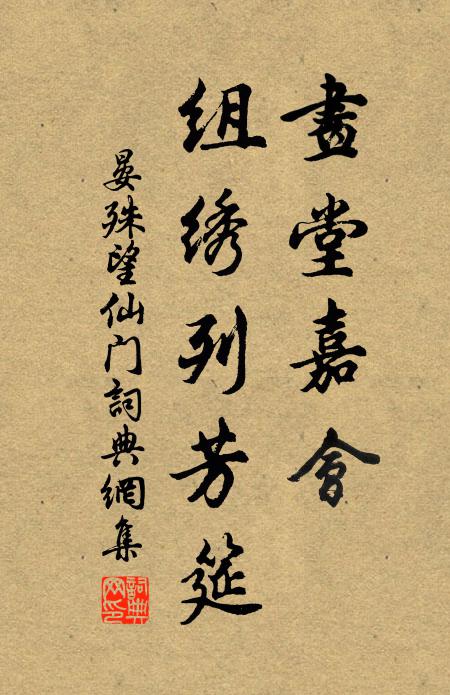 畫堂嘉會
组綉列芳筵
晏殊望仙门詞典網集
詞典网印